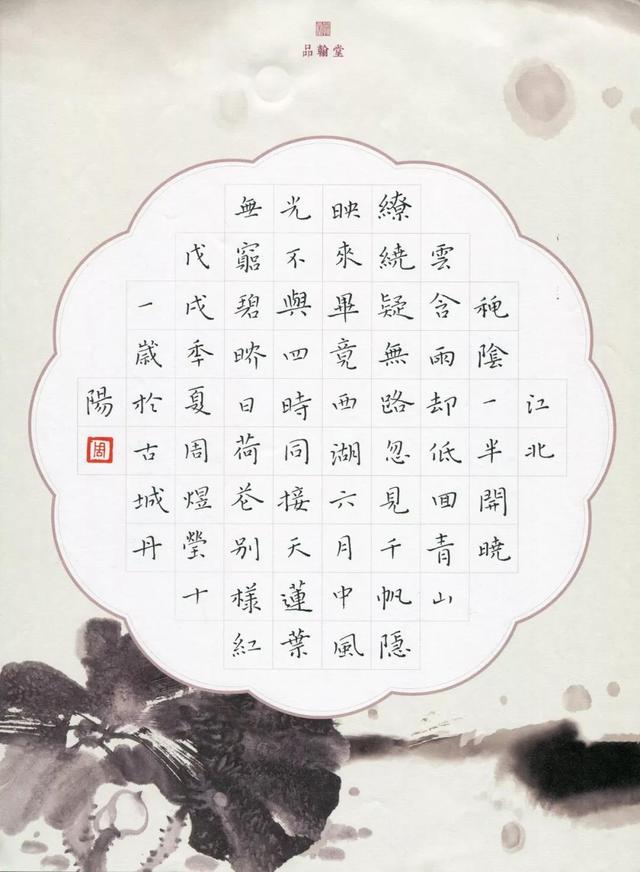 品翰堂
江北
穐陰一半開曉
雲含雨却低回青山
繚繞疑無路忽見千帆隱
映來畢竟西湖六月中風
光不與四時同接天蓮葉
無窮碧映日荷花別樣紅
戊戌季夏周煜瑩十
一歲於古城丹
陽
周